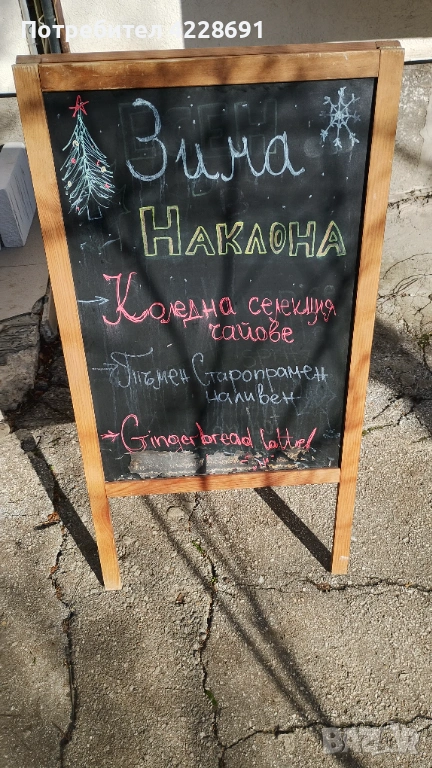 Потребител: s228691
Зима
НАКЛОНА
→ Коледна селекция
чайове
→ Тъмен Старопрамен
наливен
→ Gingerbread latte!
BAZAR